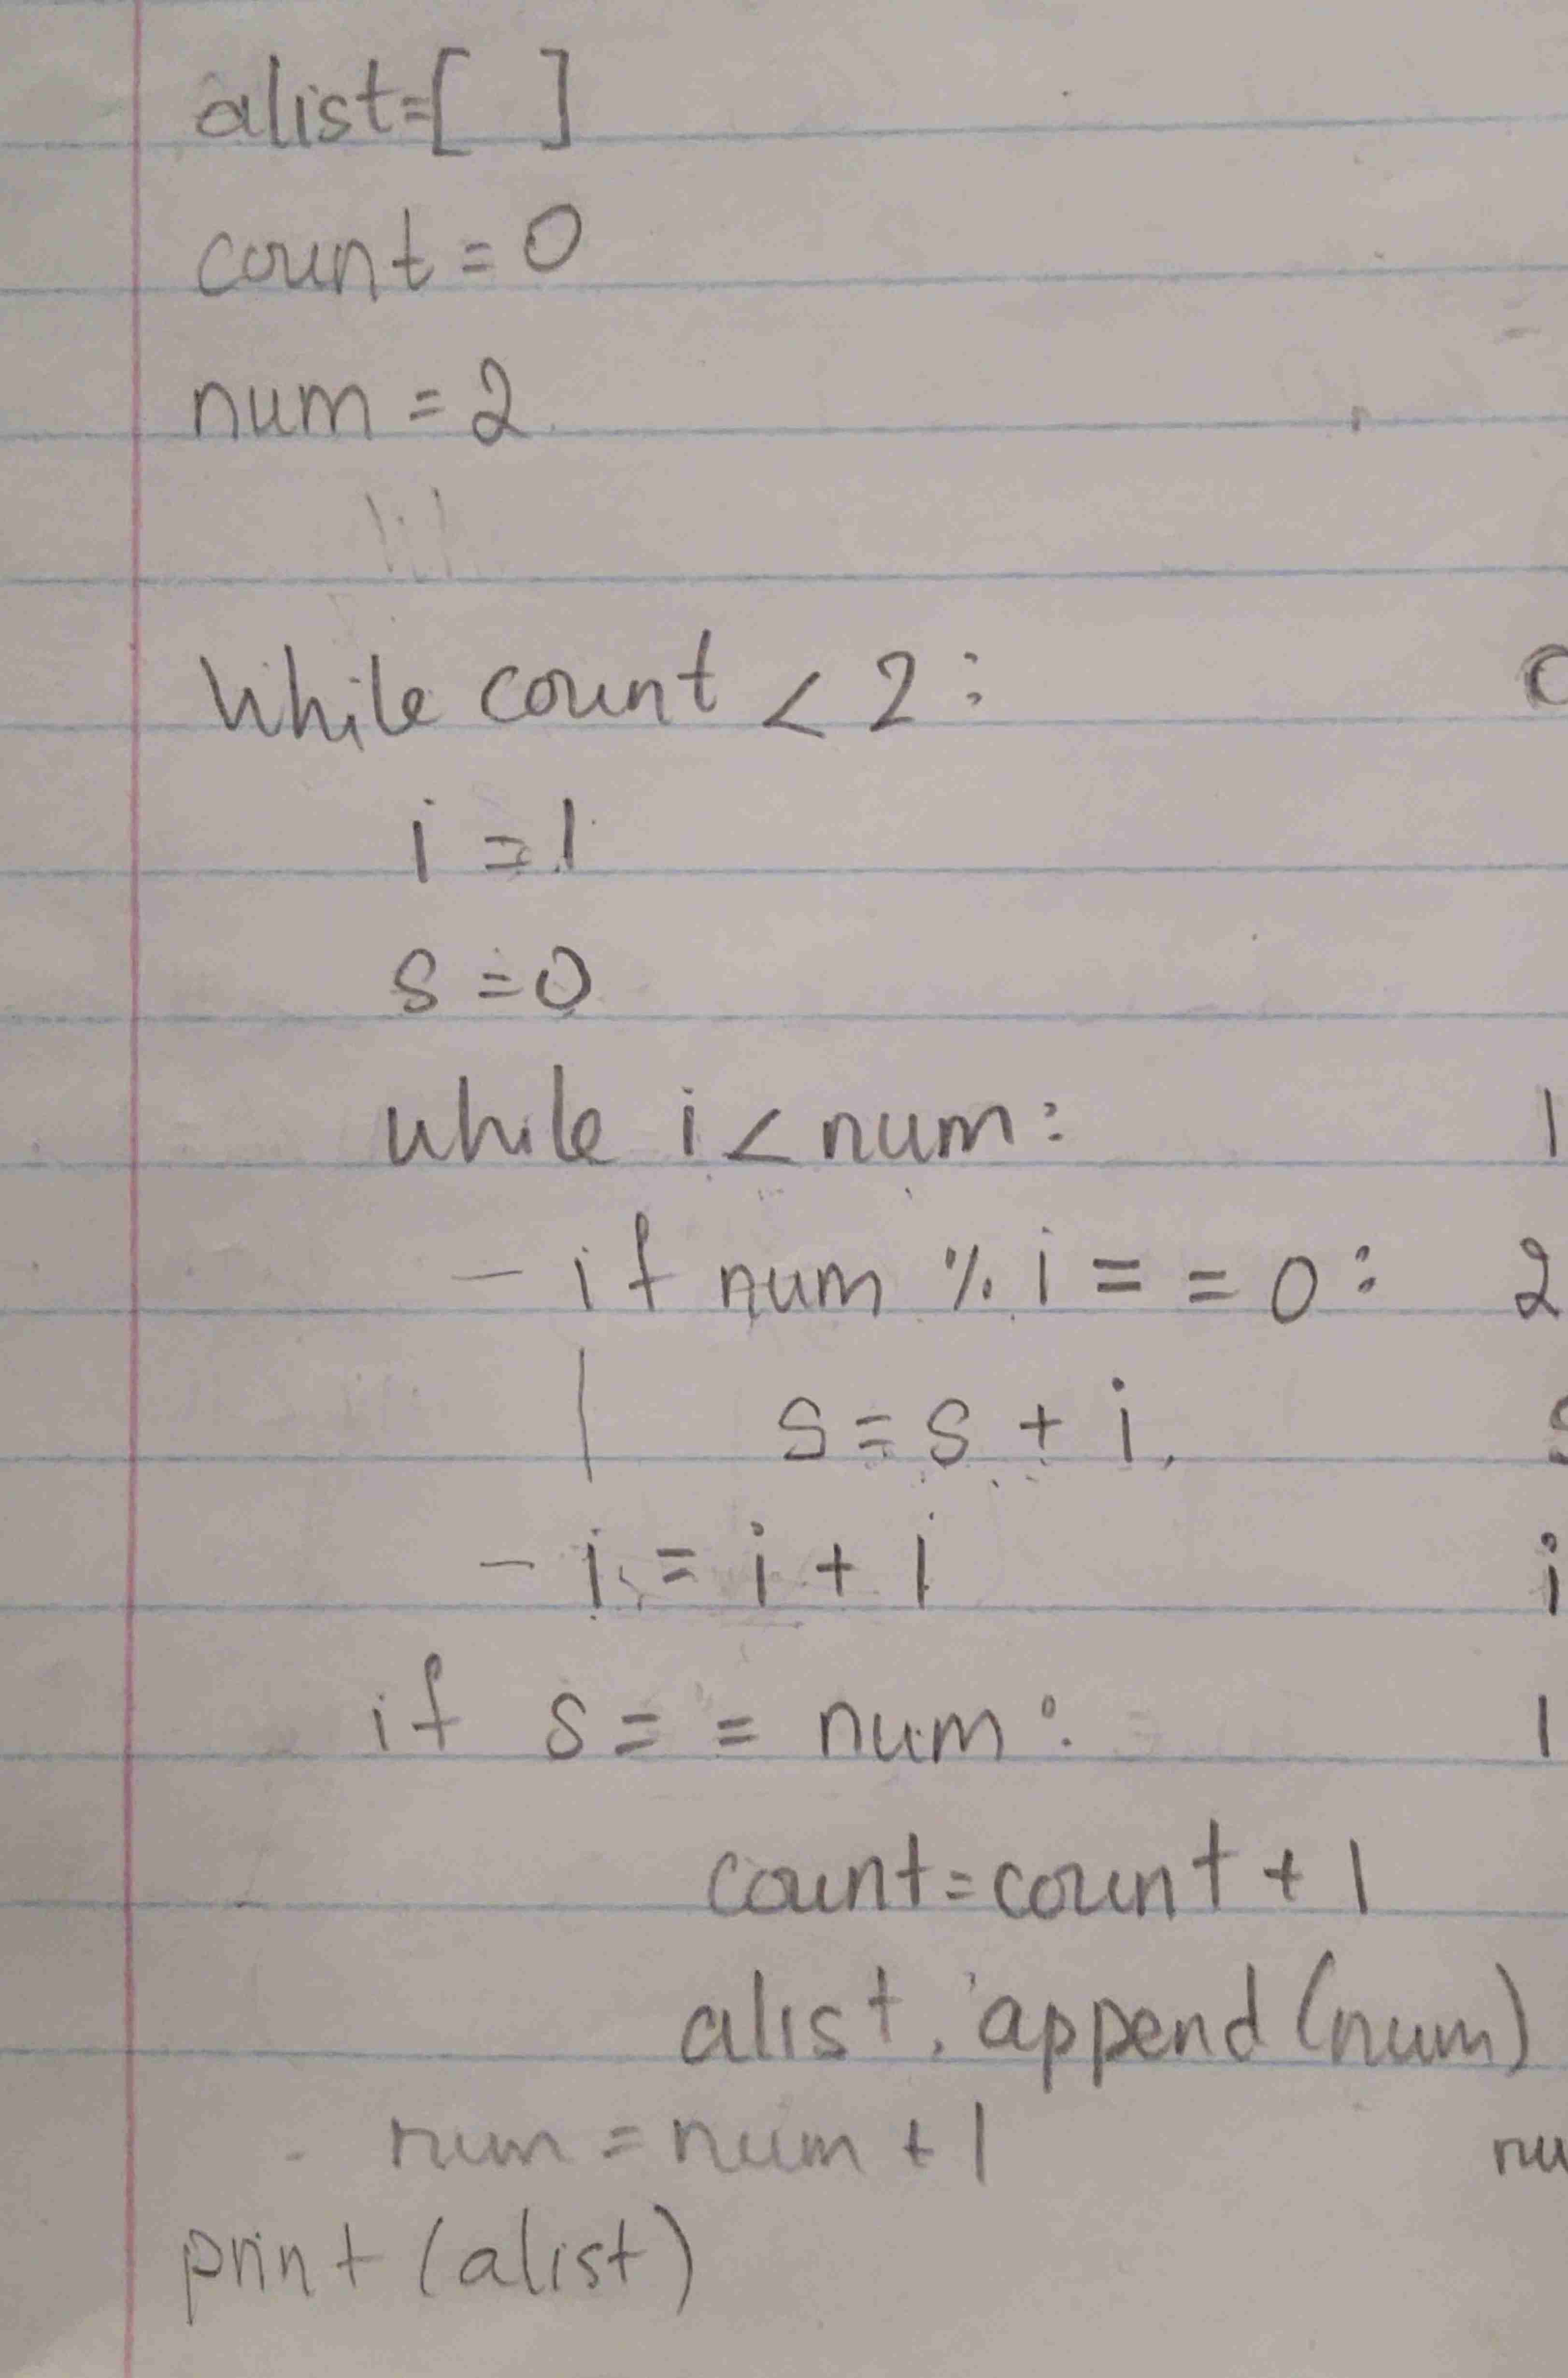 alist=[ ]
count=0
num=2
While count < 2: 0
i=1
s=0
while i<num: 1
- if num % i = = 0: 2
s=s+i. s
- i = i + 1 i
if s= = num: 1
count=count+1
alist.append(num)
num=num+1 nu
print(alist)